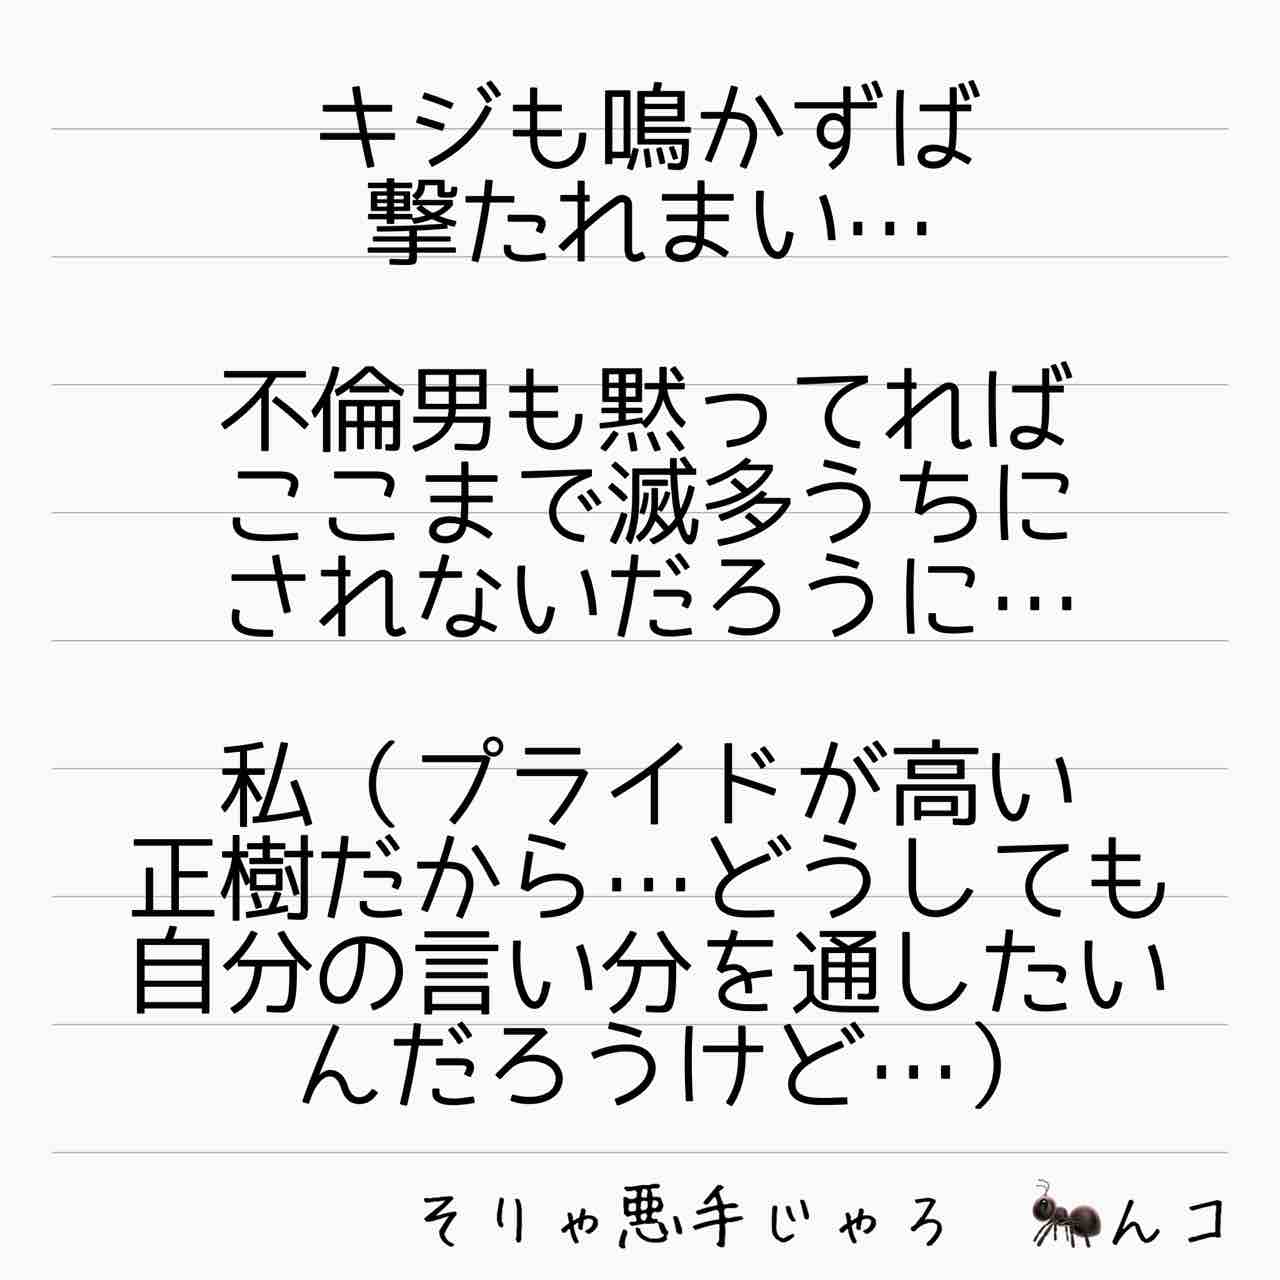 キジも鳴かずば
撃たれまい…
不倫男も黙ってれば
ここまで滅多うちに
されないだろうに…
私（プライドが高い
正樹だから…どうしても
自分の言い分を通したい
んだろうけど…）
そりゃ悪手じゃろ　🐜んコ